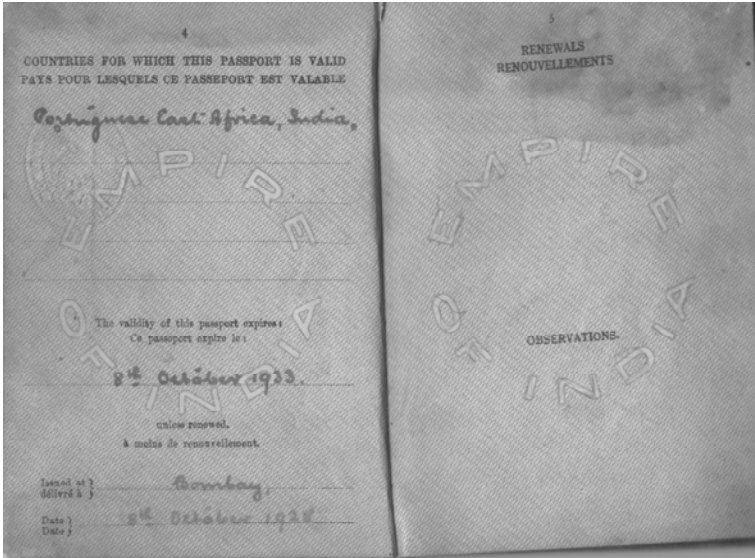 4
COUNTRIES FOR WHICH THIS PASSPORT IS VALID
PAYS POUR LESQUELS CE PASSEPORT EST VALABLE
Portuguese East Africa, India,
EMPIRE OF INDIA
The validity of this passport expires:
Ce passeport expire le:
8th October 1933.
unless renewed.
à moins de renouvellement.
Issued at } Bombay,
délivré à }
Date } 8th October 1928
Date }
5
RENEWALS
RENOUVELLEMENTS
EMPIRE OF INDIA
OBSERVATIONS.